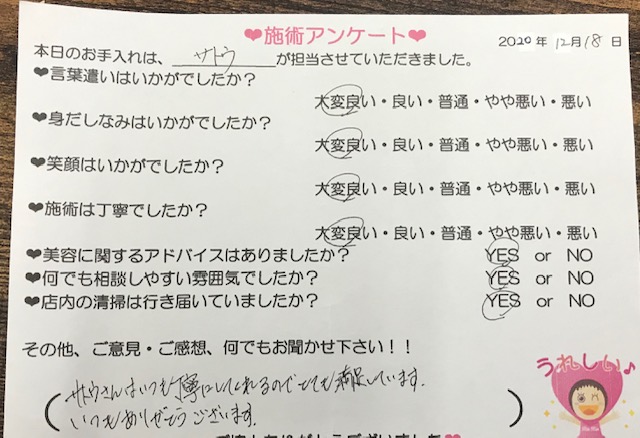 ❤施術アンケート❤
2020年 12月 18日
本日のお手入れは、 サトウ が担当させていただきました。
❤言葉遣いはいかがでしたか?
大変良い・良い・普通・やや悪い・悪い
❤身だしなみはいかがでしたか?
大変良い・良い・普通・やや悪い・悪い
❤笑顔はいかがでしたか?
大変良い・良い・普通・やや悪い・悪い
❤施術は丁寧でしたか?
大変良い・良い・普通・やや悪い・悪い
❤美容に関するアドバイスはありましたか? YES or NO
❤何でも相談しやすい雰囲気でしたか? YES or NO
❤店内の清掃は行き届いていましたか? YES or NO
その他、ご意見・ご感想、何でもお聞かせ下さい!!
うれしい♪
(サトウさんはいつも丁寧にしてくれるのでとても満足しています。
いつもありがとうございます。)